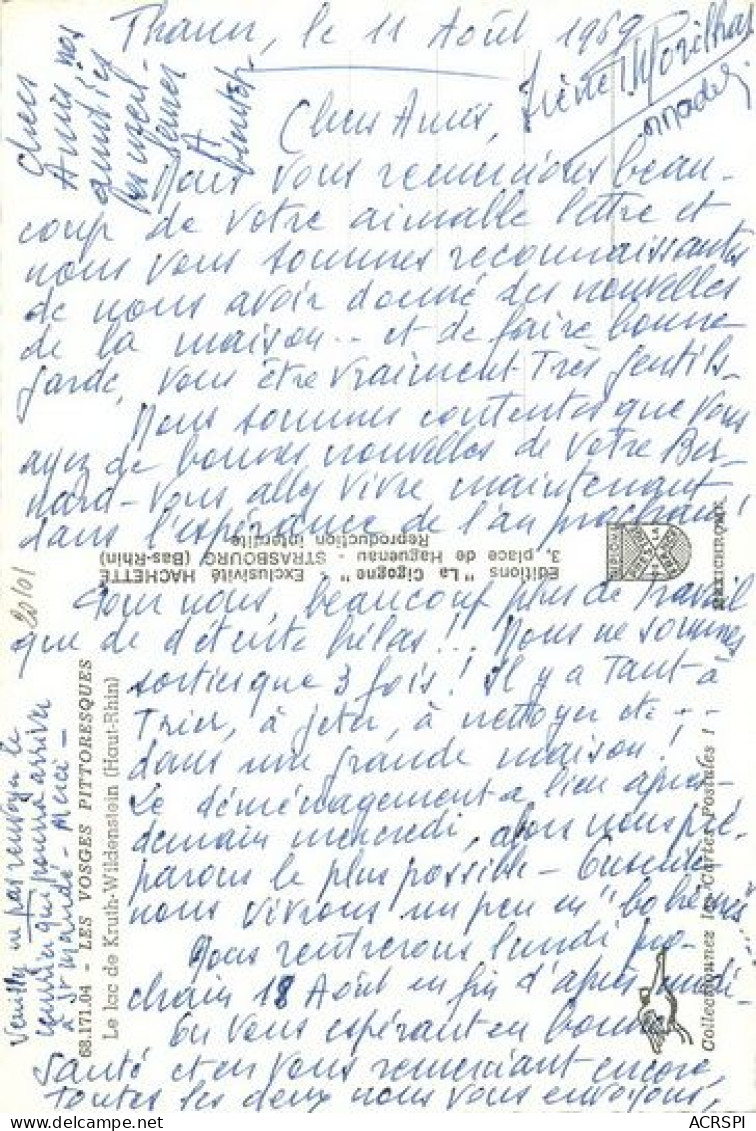 Thann, le 11 Août 1969
Chers Amis,
Nous vous remercions beau-
coup de votre aimable lettre et
nous vous sommes reconnaissantes
de nous avoir donné des nouvelles
de la maison.. et de faire bonne
garde, vous être vraiment très gentils.
Nous sommes contentes que vous
ayez de bonnes nouvelles de votre Ber-
nard - vous allez vivre maintenant
dans l'espérance de l'an prochain!
Pour nous, beaucoup plus de travail
que de détente hélas!.. Nous ne sommes
sorties que 3 fois! Il y a tant à
trier, à jeter, à nettoyer etc...
dans une grande maison!
Le déménagement a lieu après-
demain mercredi, alors nous pré-
parons le plus possible - Ensuite
nous vivrons un peu en "bohémiens"
Nous rentrerons lundi pro-
chain 18 Août en fin d'après midi!
En vous espérant en bonne
santé et en vous remerciant encore,
toutes les deux nous vous envoyons,
chers
Amis nos
amitiés
les meil-
leures
A
bientôt
Irène
Veuillez ne pas renvoyer le
courrier qui pourra arriver
à St Mandé - Merci -
20/01
Editions "La Cigogne" - Exclusivité HACHETTE
3, place de Haguenau - STRASBOURG (Bas-Rhin)
Reproduction interdite
MEXICHROME
68.171.04 - LES VOSGES PITTORESQUES
Le lac de Kruth-Wildenstein (Haut-Rhin)
Collectionnez les Cartes Postales !
ACRSPI